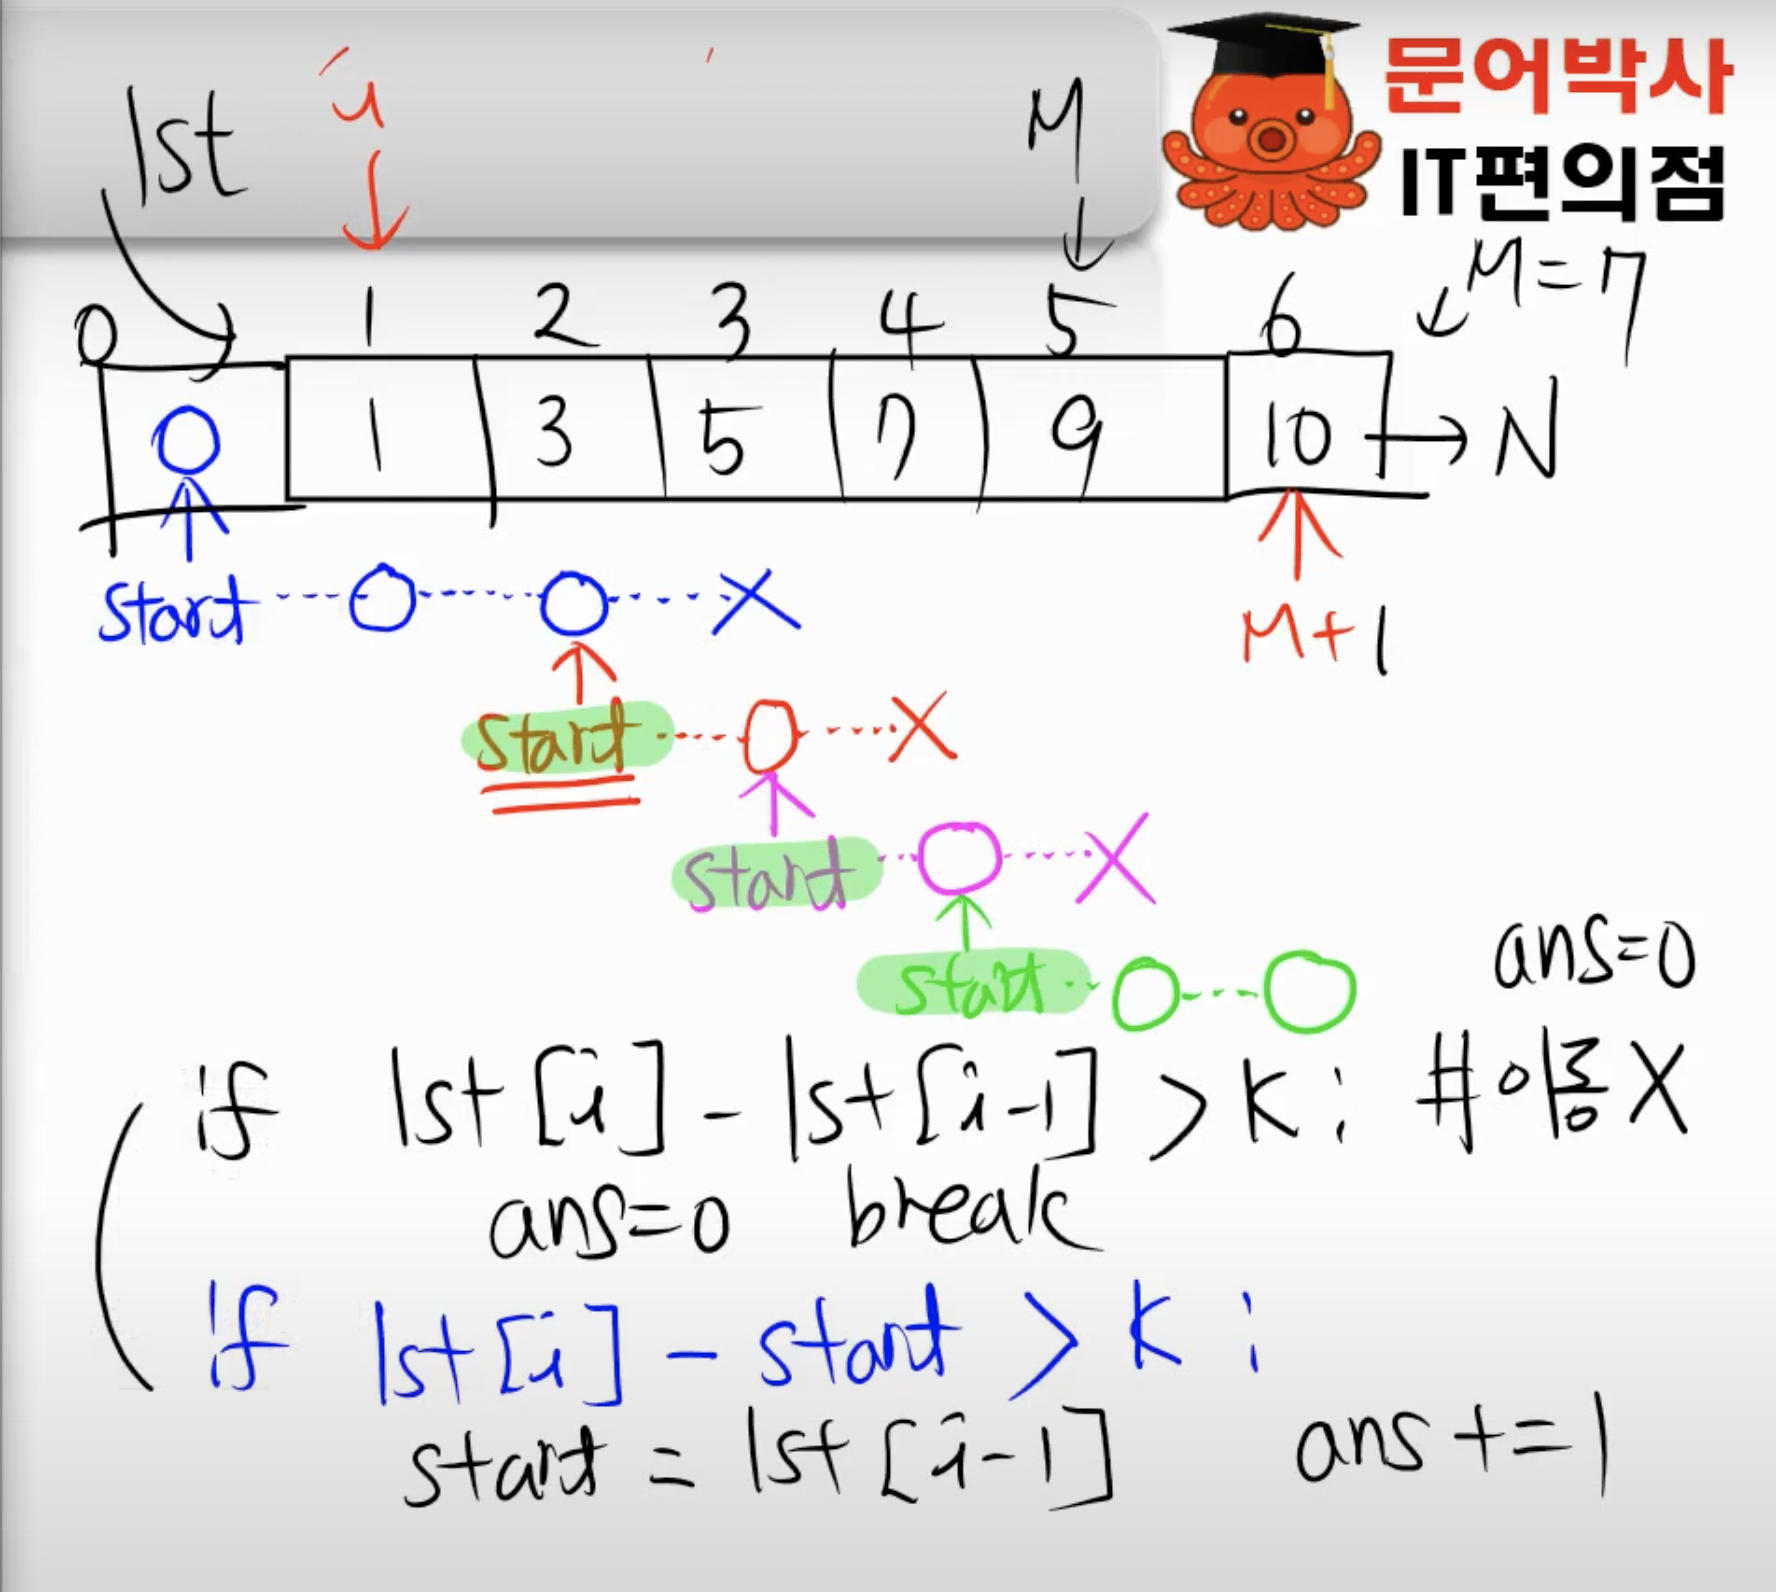 문어박사
IT편의점
lst i M
M=7
0 1 2 3 4 5 6
0 1 3 5 7 9 10 → N
start O O X
M+1
start O X
start O X
start O O
ans=0
if lst[i] - lst[i-1] > K: #이동X
ans=0 break
if lst[i] - start > K:
start = lst[i-1] ans+=1